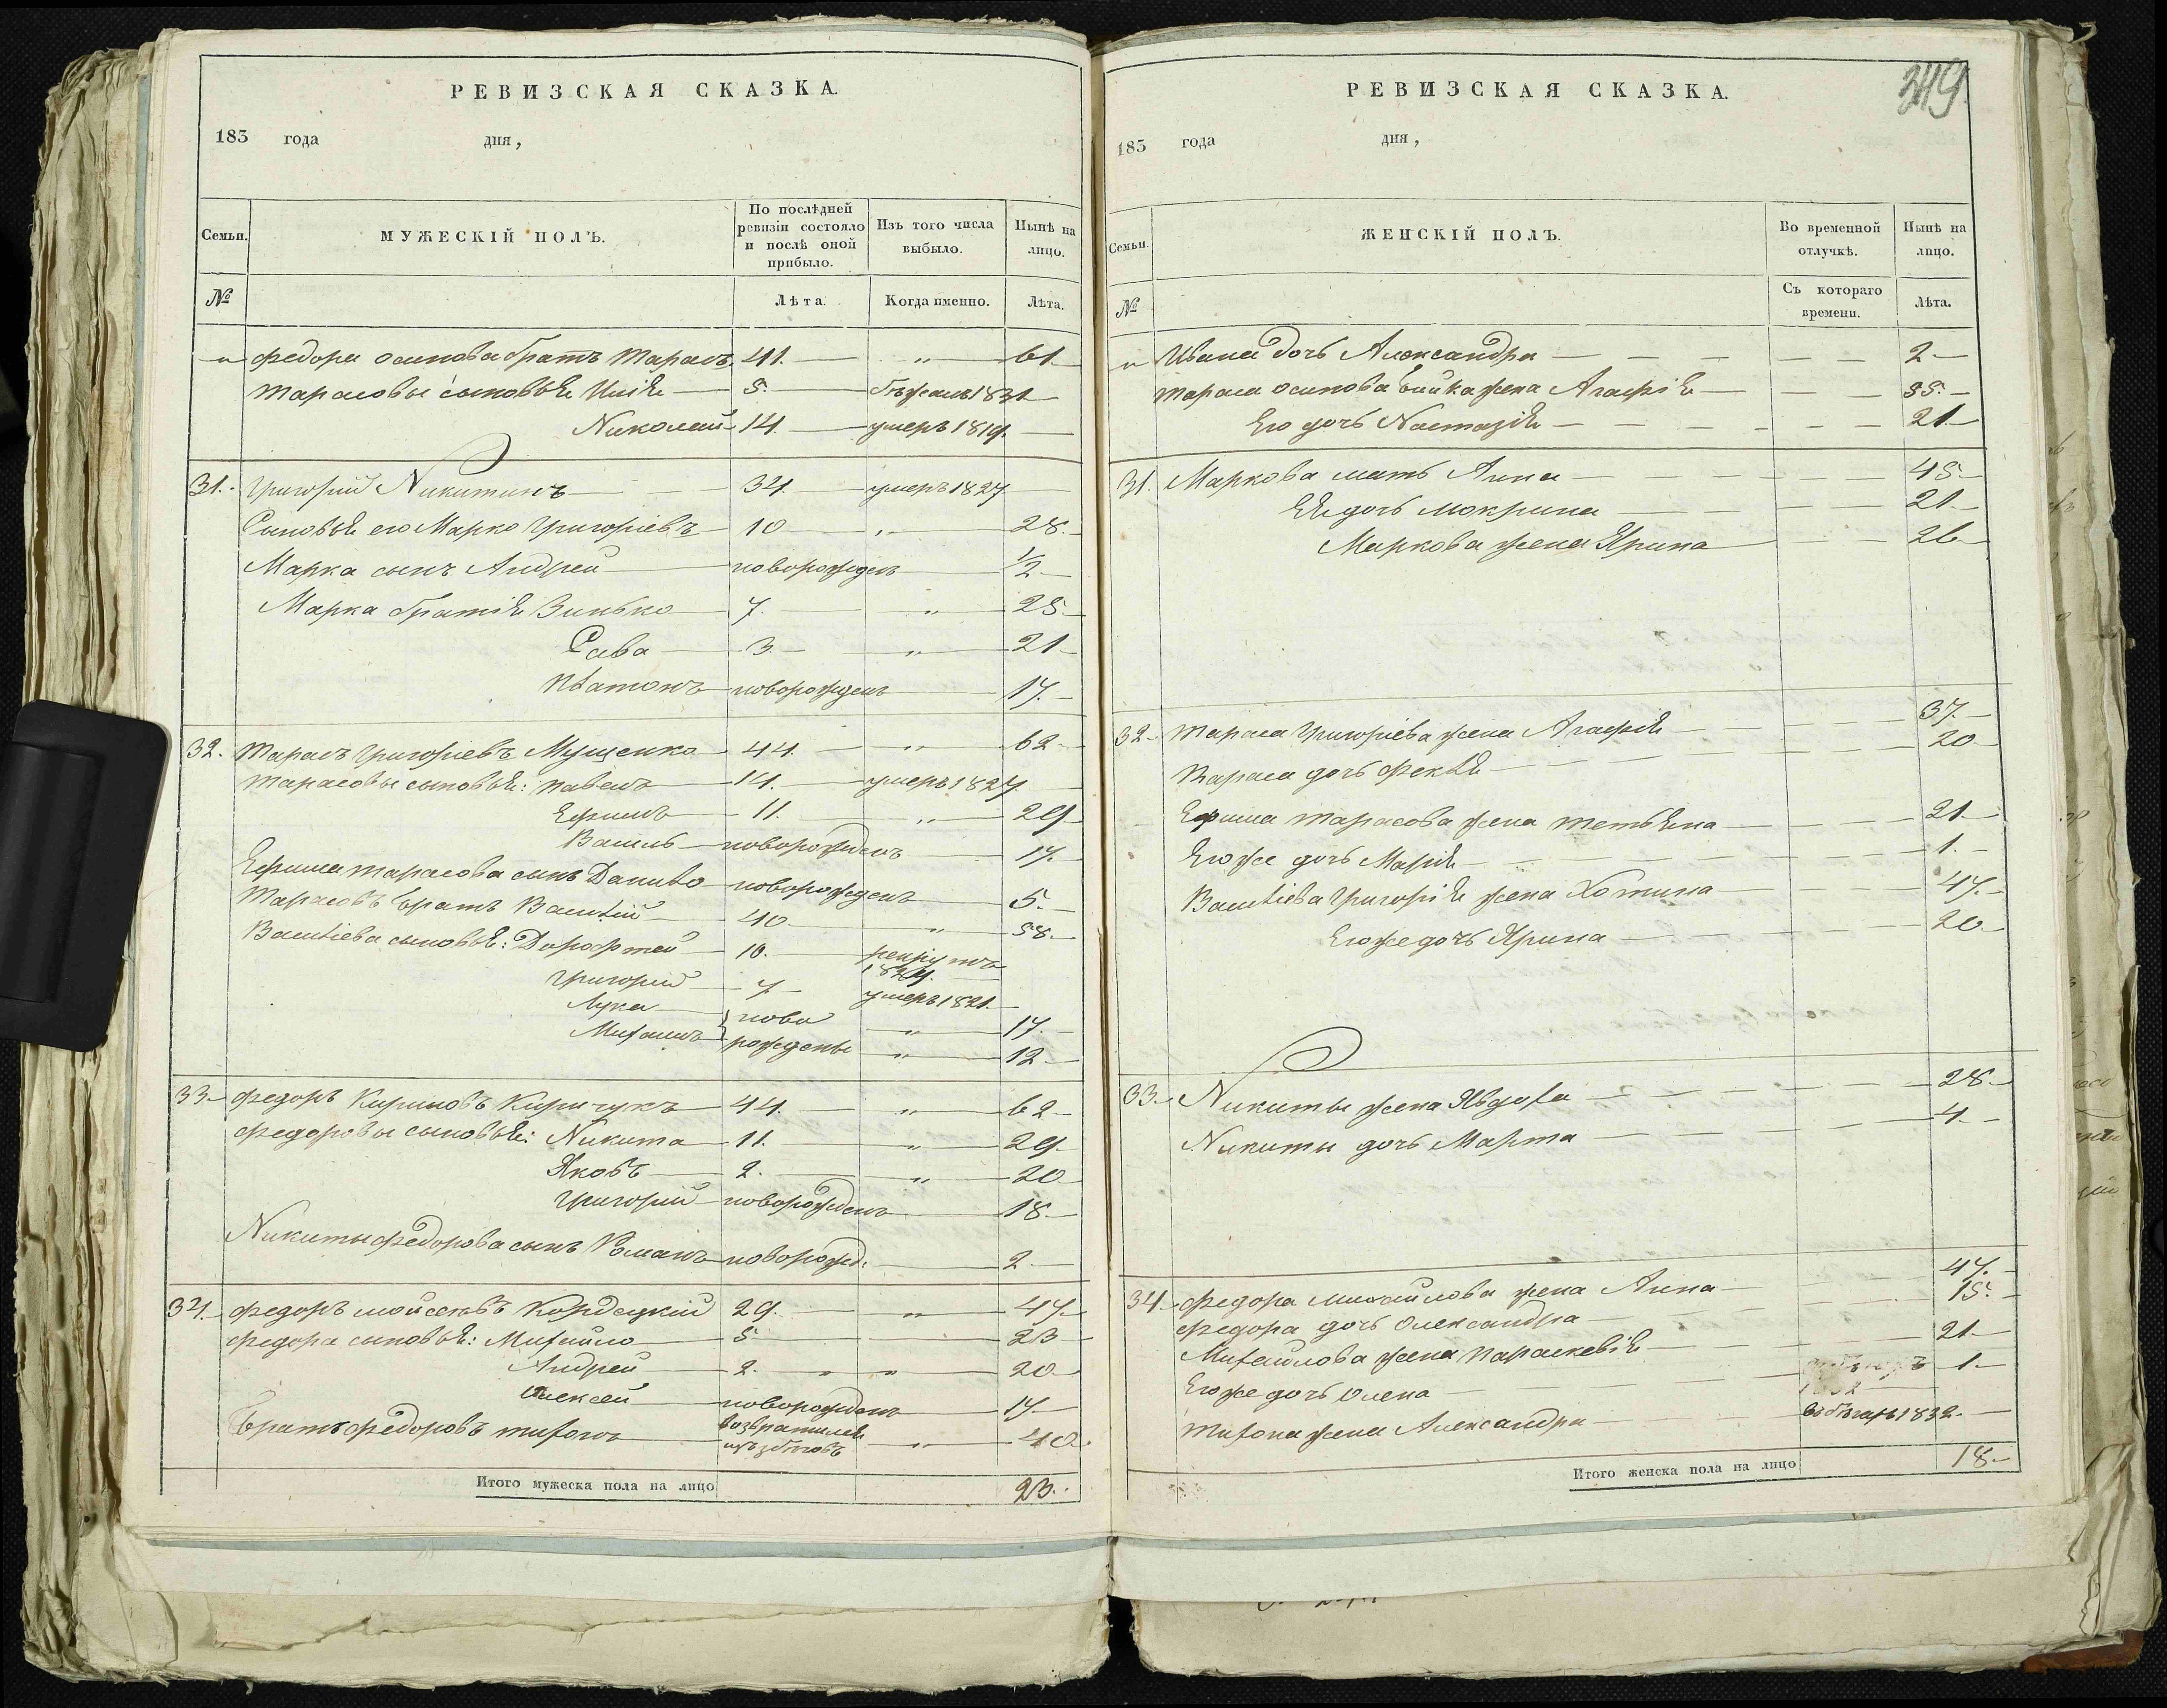 РЕВИЗСКАЯ СКАЗКА.
183 года дня,
Семьи. МУЖЕСКІЙ ПОЛЪ. По послѣдней ревизіи состояло и послѣ оной прибыло. Изъ того числа выбыло. Нынѣ на лицо.
№ Лѣта. Когда именно. Лѣта.
" Федора осипова братъ Тарасъ 41. " 61.
Тарасовы сыновья Илія 5. бѣжалъ 1831
Николай 14. умеръ 1819.
31. Григорій Никитинъ 34. умеръ 1827
Сыновья его Марко Григоріевъ 10 " 28.
Марка сынъ Андрей новорожденъ 1/2
Марка братія Зинько 7. " 25.
Сава 3. " 21
Платонъ новорожденъ 17.
32. Тарасъ Григоріевъ Мущенко 44. " 62
Тарасовы сыновья: Павелъ 14. умеръ 1827
Ефимъ 11. " 29
Василь новорожденъ 17.
Ефима Тарасова сынъ Данило новорожденъ 5.
Тарасовъ братъ Василій 40 " 58.
Василіева сыновья: Дорофтей 10. рекрутъ
Григорій 7 умеръ 1821.
Лука } ново " 17.
Михаилъ } рождены " 12
33. Федоръ Кириловъ Киричукъ 44. " 62
Федоровы сыновья: Никита 11. " 29.
Яковъ 2. " 20
Григорій новорожденъ 18
Никиты Федорова сынъ Романъ новорожд: 2
34. Федоръ Мойсеевъ Кордецкій 29. " 47.
Федора сыновья: Михайло 5 23
Андрей 2. " " 20
Алексей новорожденъ 17
Братъ Федоровъ Тихонъ возвратился
изъ бѣговъ " 40.
Итого мужеска пола на лицо 23.
349
РЕВИЗСКАЯ СКАЗКА.
183 года дня,
Семьи. ЖЕНСКІЙ ПОЛЪ. Во временной отлучкѣ. Нынѣ на лицо.
№ Съ котораго времени. Лѣта.
" Ивана дочь Александра 2
Тараса осипова жена Агафія 55.
Его дочь Настазія 21.
31. Маркова мать Анна 45
Ея дочь Мокрина 21.
Маркова жена Ярина 26
32. Тараса Григоріева жена Агафія 37.
Тараса дочь Фекла 20
Ефима Тарасова жена Тетьяна 21.
Его же дочь Марія 1.
Василіева Григорія жена Хотина 47.
Его же дочь Ярина 20
33. Никиты жена Явдоха 28
Никиты дочь Марта 4.
34. Федора Михайлова жена Анна 47.
Федора дочь Олександра 15.
Михайлова жена Параскевія 21.
Его же дочь Олена 1.
Тихона жена Александра въ бѣгахъ 1832.
Итого женска пола на лицо 18